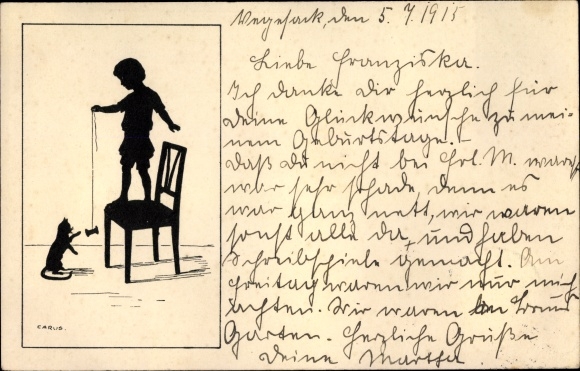 Vegesack, den 5. 7. 1915
Liebe Franziska.
Ich danke Dir herzlich für
Deine Glückwünsche zu mei-
nem Geburtstage.-
Daß Du nicht bei Frl. M. warest
war sehr schade, denn es
war ganz nett, wir waren
sonst alle da, und haben
Schreibspiele gemacht. Am
Freitag waren wir nur mich
achten. Wir waren
Garten. Herzliche Grüße
Deine Martha.
CARUS.